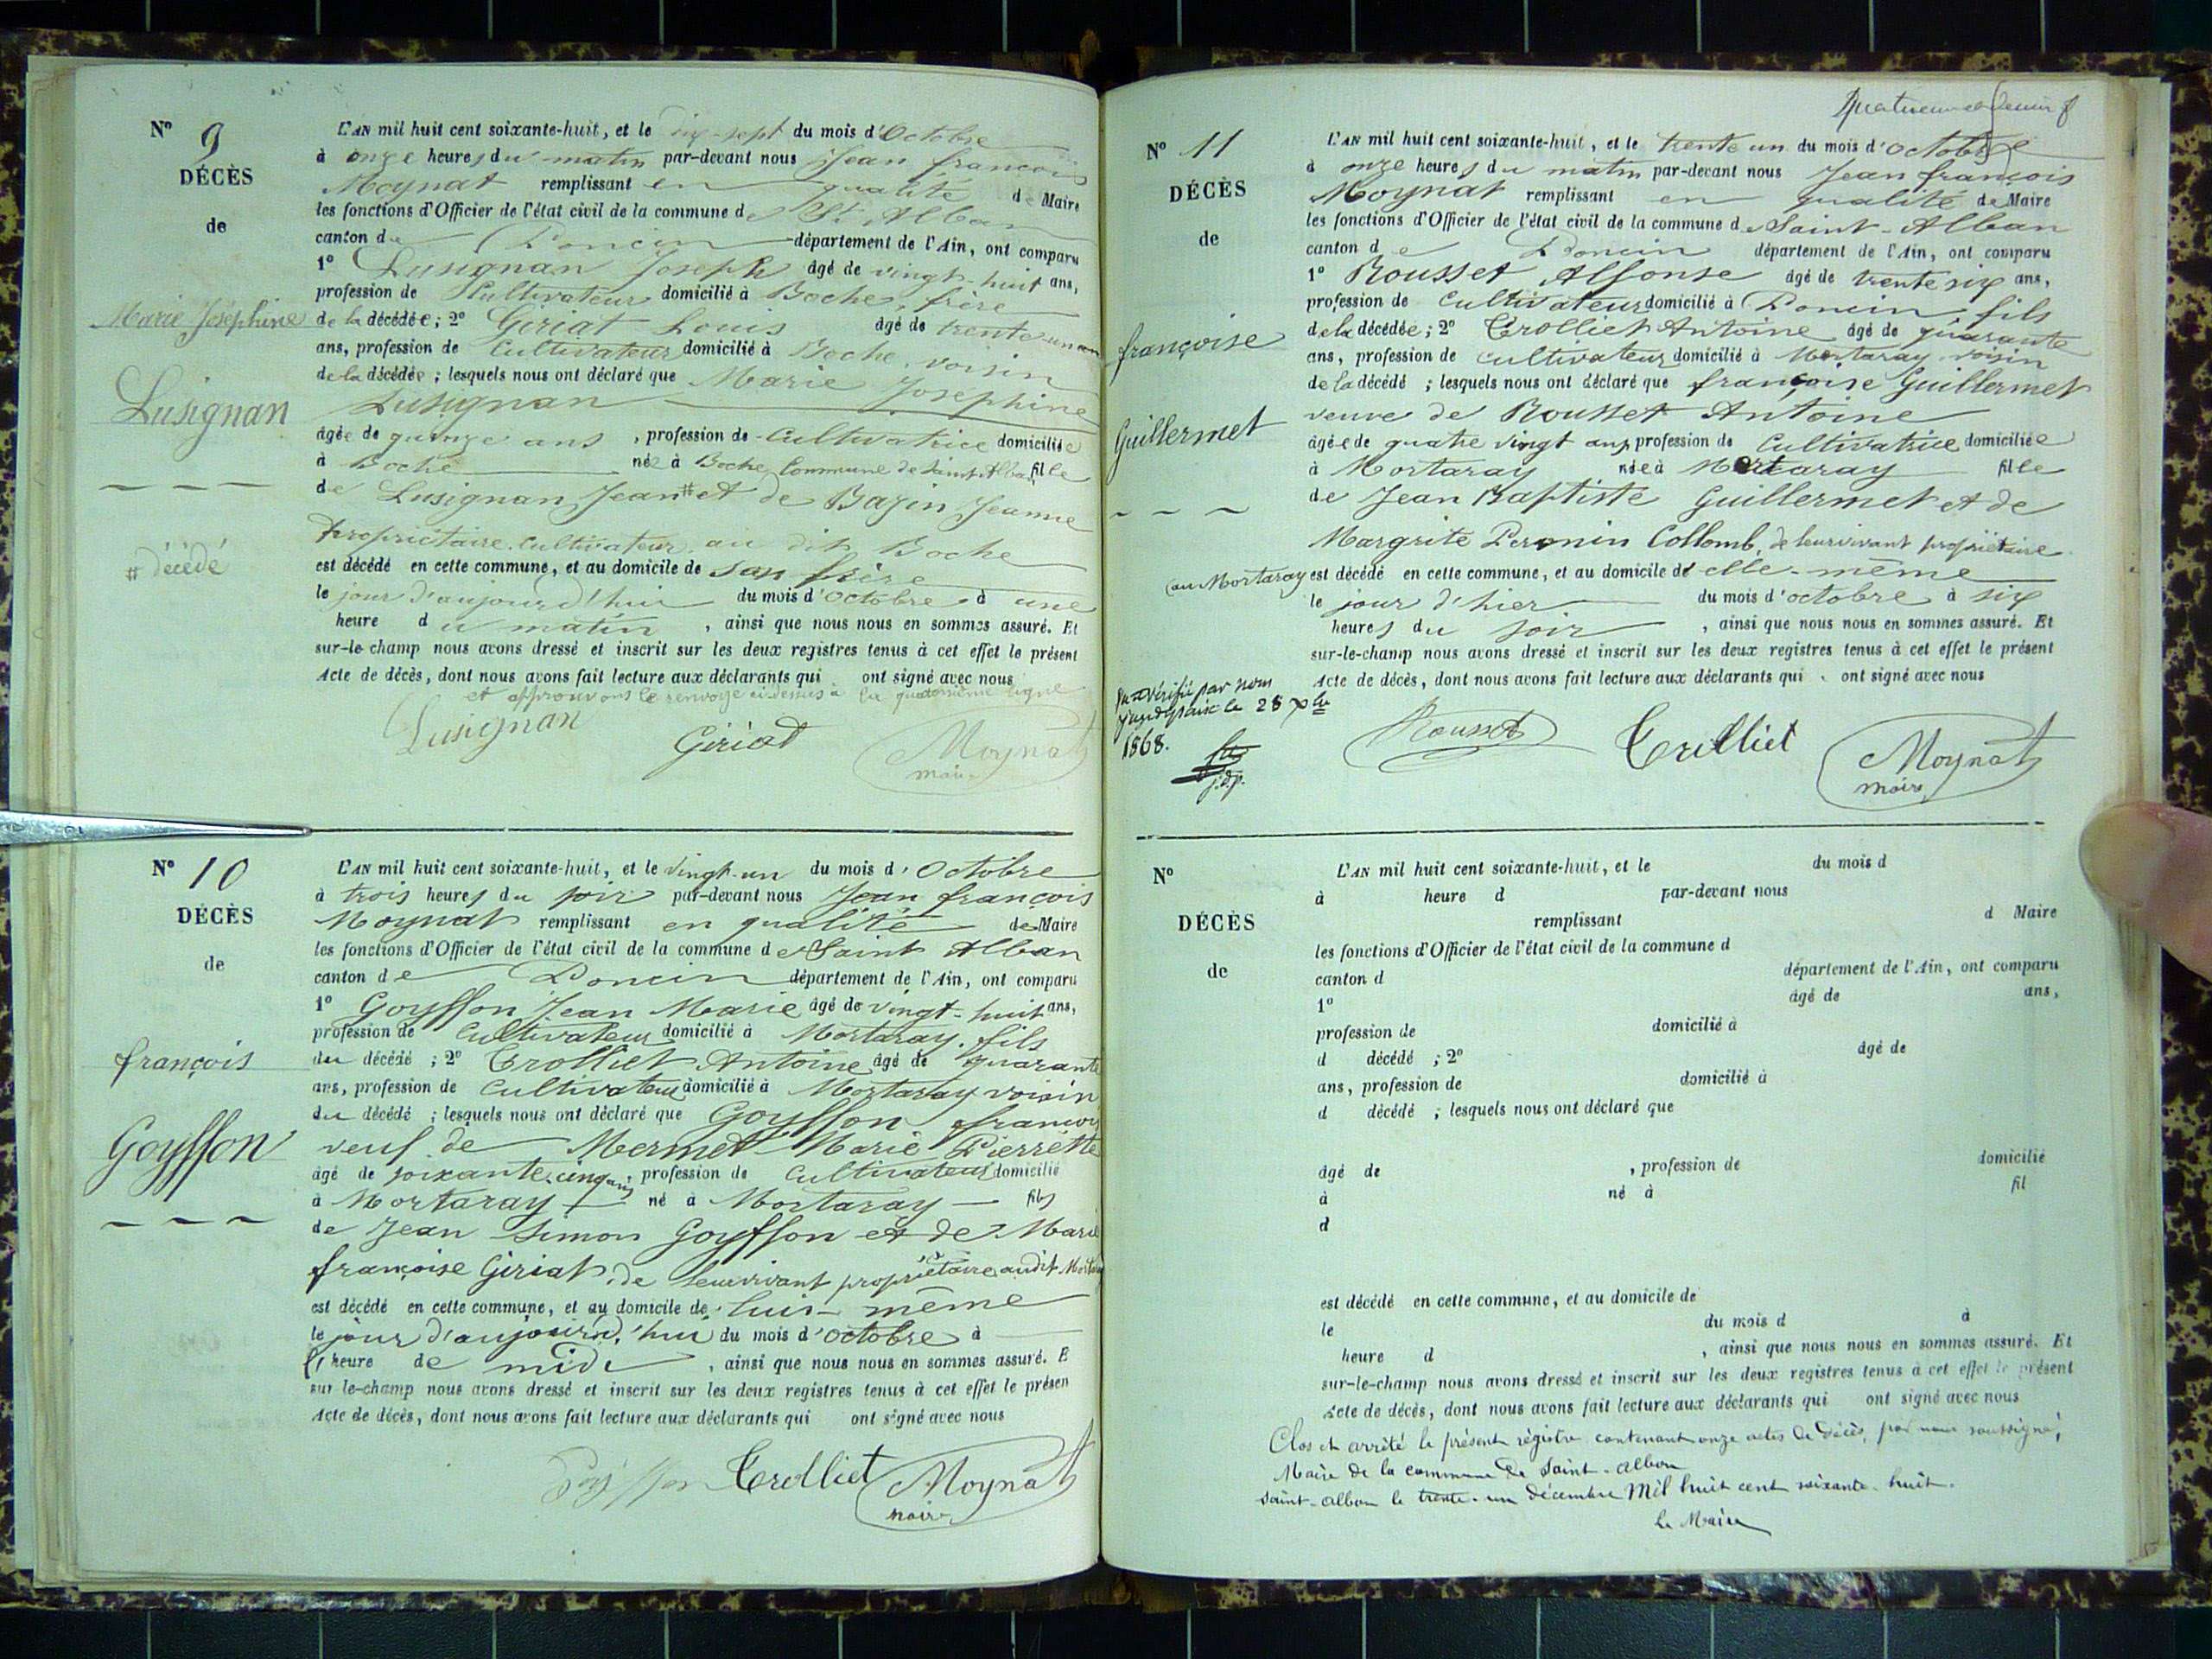 N° 9
DÉCÈS
de
Marie Joséphine
Lusignan
# décédé
L'AN mil huit cent soixante-huit, et le dix-sept du mois d'Octobre
à onze heures du matin par-devant nous Jean françois
Moynat remplissant en qualité de Maire
les fonctions d'Officier de l'état civil de la commune de St Alban
canton de Poncin département de l'Ain, ont comparu
1° Lusignan Joseph âgé de vingt-huit ans,
profession de Cultivateur domicilié à Boche, frère
de la décédée; 2° Giriat Louis âgé de trente-un
ans, profession de Cultivateur domicilié à Boche, voisin
de la décédée; lesquels nous ont déclaré que Marie Joséphine
Lusignan
âgée de quinze ans, profession de Cultivatrice domiciliée
à Boche née à Boche, Commune de Saint-Alban, fille
de Lusignan Jean # et de Bazin Jeanne
Propriétaire Cultivateur au dit Boche
est décédé en cette commune, et au domicile de son frère
le jour d'aujourd'hui du mois d'Octobre à une
heure du matin, ainsi que nous nous en sommes assuré. Et
sur-le-champ nous avons dressé et inscrit sur les deux registres tenus à cet effet le présent
Acte de décès, dont nous avons fait lecture aux déclarants qui ont signé avec nous
et approuvons le renvoye ci-dessus à la quatorzième ligne
Lusignan Giriat Moynat
maire
N° 10
DÉCÈS
de
françois
Goyffon
L'AN mil huit cent soixante-huit, et le vingt-un du mois d'Octobre
à trois heures du soir par-devant nous Jean françois
Moynat remplissant en qualité de Maire
les fonctions d'Officier de l'état civil de la commune de Saint Alban
canton de Poncin département de l'Ain, ont comparu
1° Goyffon Jean Marie âgé de vingt-huit ans,
profession de Cultivateur domicilié à Mortaray, fils
du décédé; 2° Trolliet Antoine âgé de quarante
ans, profession de Cultivateur domicilié à Mortaray voisin
du décédé; lesquels nous ont déclaré que Goyffon françois
veuf de Mermet Marie Pierrette
âgé de soixante cinq ans, profession de Cultivateur domicilié
à Mortaray né à Mortaray fils
de Jean Simon Goyffon et de Marie
françoise Giriat, de leur vivant propriétaire audit Mortaray
est décédé en cette commune, et au domicile de lui-même
le jour d'aujourd'hui du mois d'Octobre à
l'heure de midi, ainsi que nous nous en sommes assuré. E
sur le-champ nous avons dressé et inscrit sur les deux registres tenus à cet effet le présen
Acte de décès, dont nous avons fait lecture aux déclarants qui ont signé avec nous
Goyffon Trolliet Moynat
maire
N° 11
DÉCÈS
de
françoise
Guillermet
L'AN mil huit cent soixante-huit, et le trente un du mois d'Octobre
à onze heures du matin par-devant nous Jean françois
Moynat remplissant en qualité de Maire
les fonctions d'Officier de l'état civil de la commune de Saint-Alban
canton de Poncin département de l'Ain, ont comparu
1° Rousset Alfonse âgé de trente six ans,
profession de Cultivateur domicilié à Poncin, fils
de la décédée; 2° Trolliet Antoine âgé de quarante
ans, profession de cultivateur domicilié à Mortaray voisin
de la décédé; lesquels nous ont déclaré que françoise Guillermet
veuve de Rousset Antoine
âgée de quatre vingt ans, profession de Cultivatrice domiciliée
à Mortaray née à Mortaray fille
de Jean Baptiste Guillermet et de
Margrite Collomb, de leur vivant propriétaire
au Mortaray est décédé en cette commune, et au domicile de elle-même
le jour d'hier du mois d'octobre à six
heures du soir, ainsi que nous nous en sommes assuré. Et
sur-le-champ nous avons dressé et inscrit sur les deux registres tenus à cet effet le présent
Acte de décès, dont nous avons fait lecture aux déclarants qui ont signé avec nous
vérifié par nous
juge de paix le 28 Xbre
1868.
j.d.p.
Rousset Trolliet Moynat
maire
N°
DÉCÈS
de
L'AN mil huit cent soixante-huit, et le du mois d
à heure d par-devant nous
remplissant d Maire
les fonctions d'Officier de l'état civil de la commune d
canton d département de l'Ain, ont comparu
1° âgé de ans,
profession de domicilié à
d décédé ; 2° âgé de
ans, profession de domicilié à
d décédé ; lesquels nous ont déclaré que
âgé de , profession de domicilié
à né à fil
d
est décédé en cette commune, et au domicile de
le du mois d à
heure d , ainsi que nous nous en sommes assuré. Et
sur-le-champ nous avons dressé et inscrit sur les deux registres tenus à cet effet le présent
Acte de décès, dont nous avons fait lecture aux déclarants qui ont signé avec nous
Clos et arrêté le présent régistre contenant onze actes de décès, par nous soussigné,
Maire de la commune de Saint-Alban
Saint-Alban le trente-un décembre Mil huit cent soixante-huit.
Le Maire